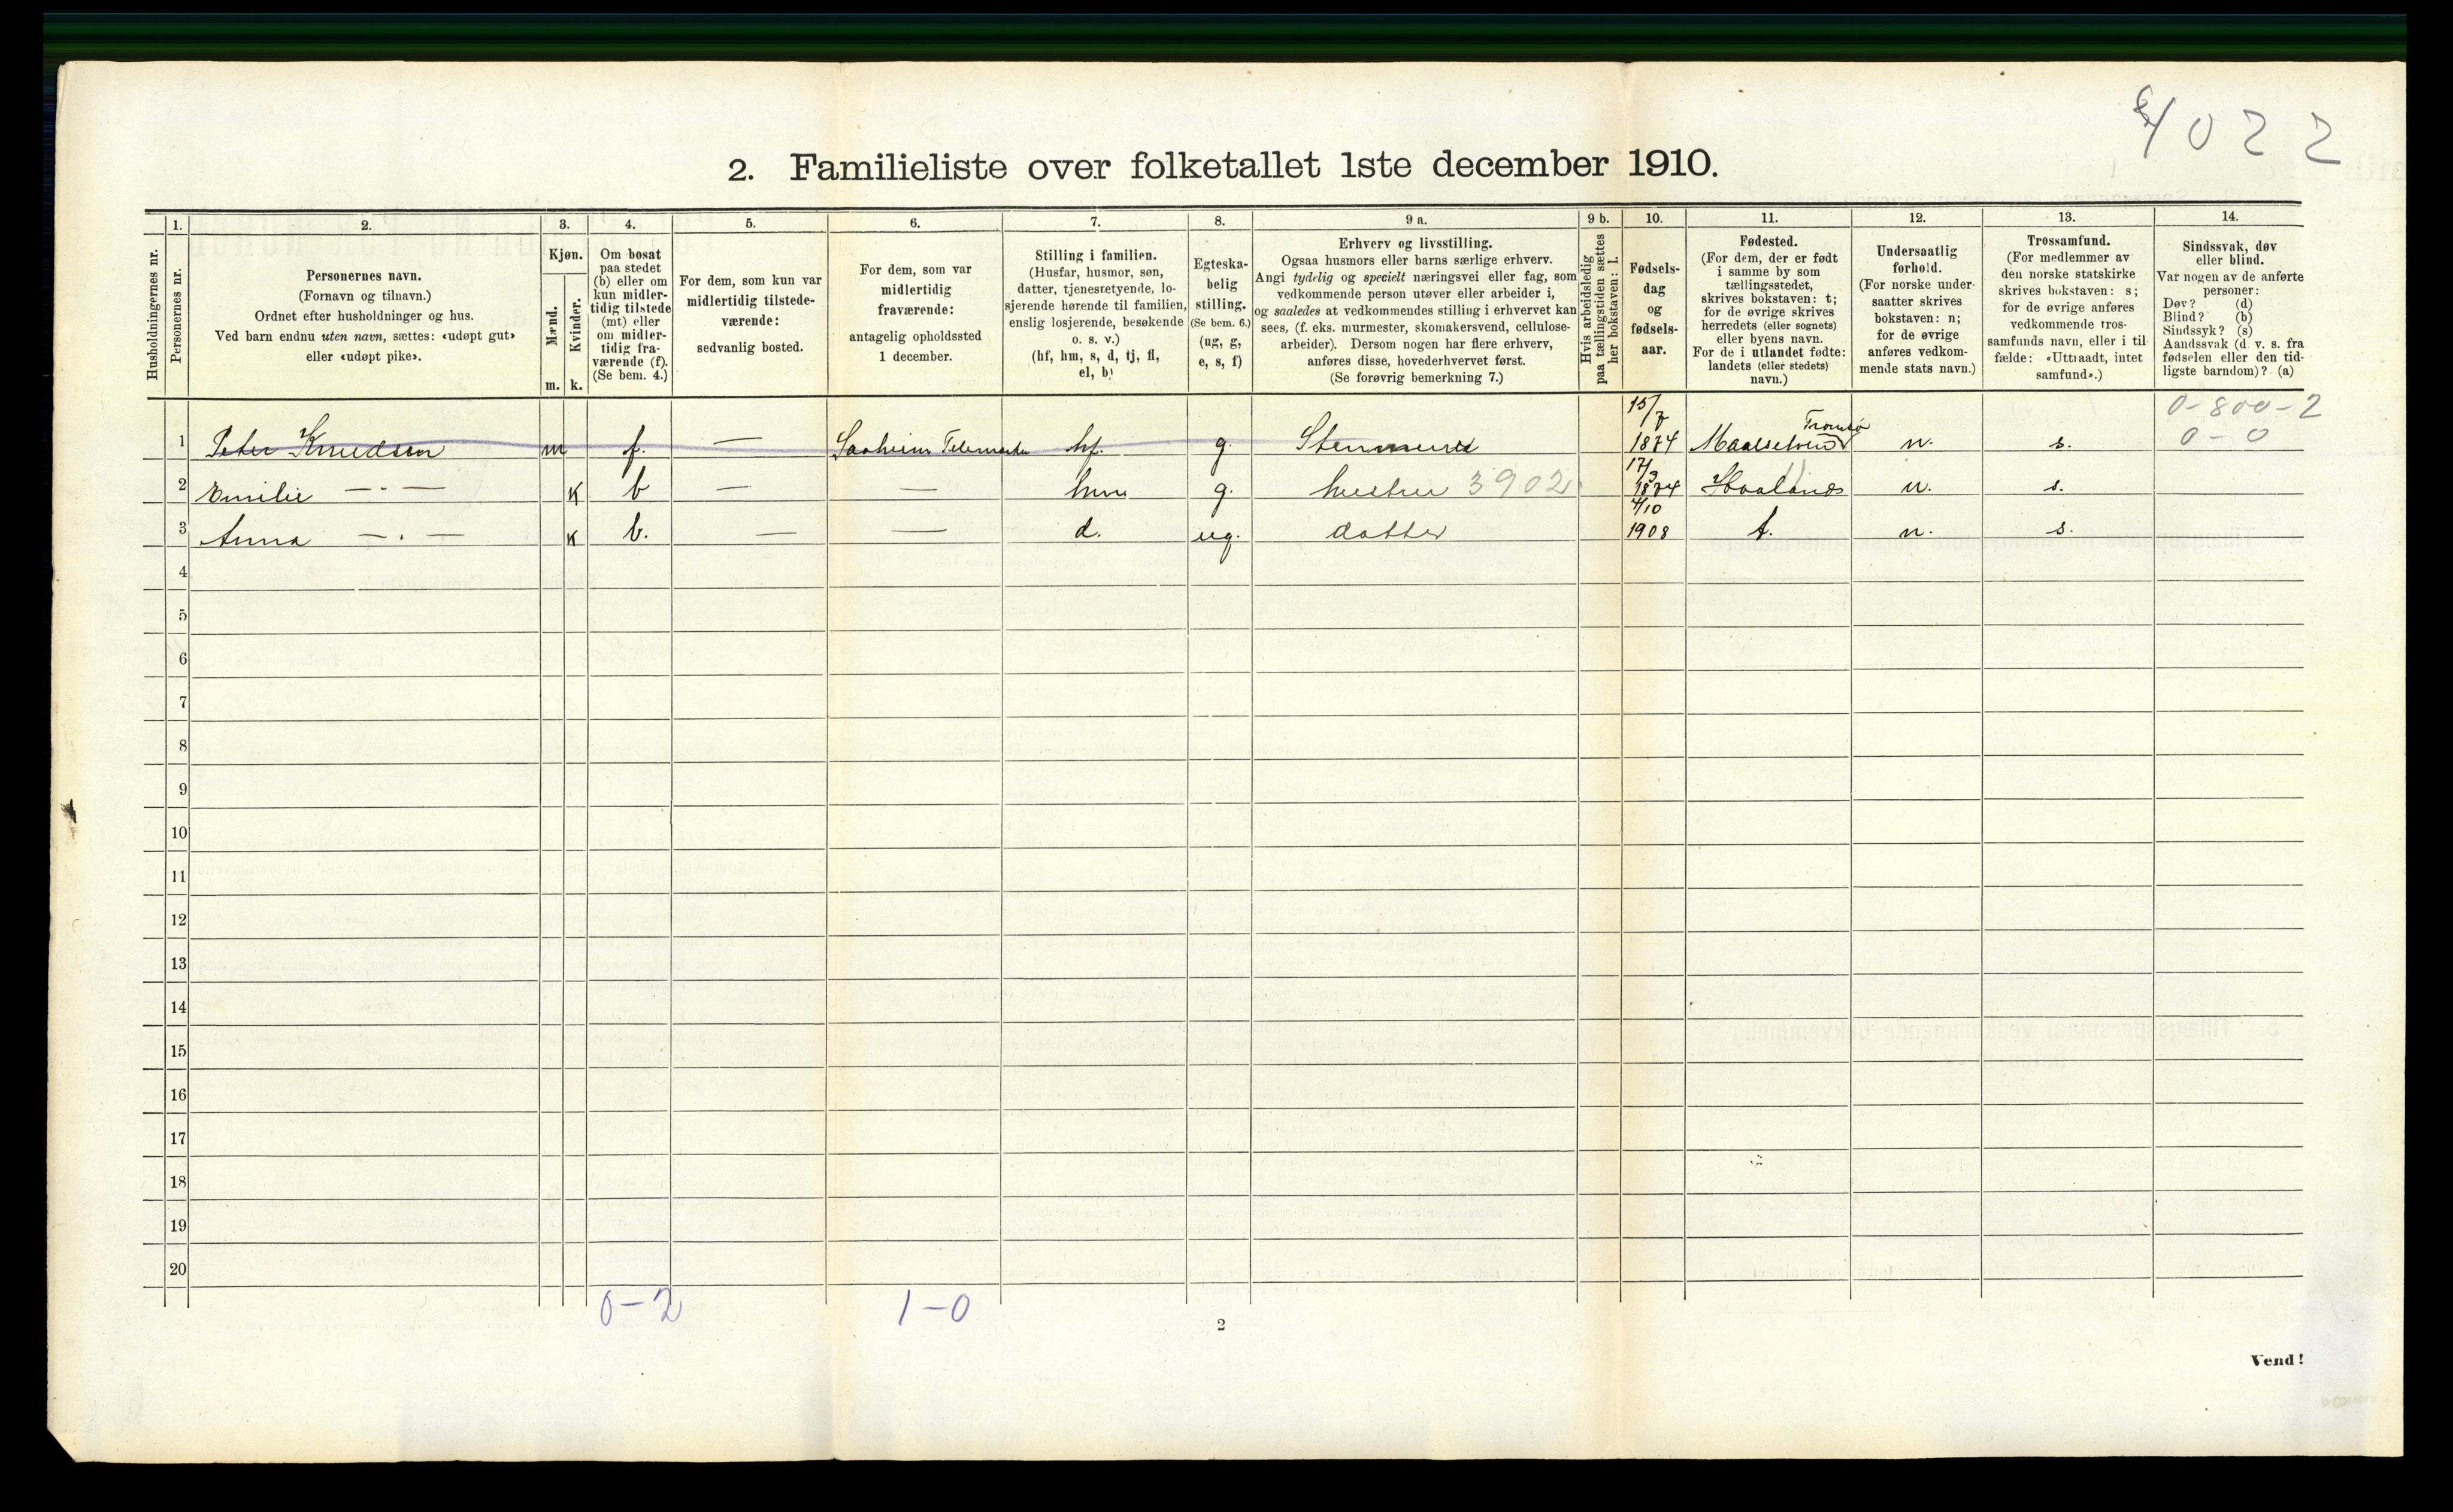 4022
2. Familieliste over folketallet 1ste december 1910.
Husholdningernes nr.
1. Personernes nr.
2. Personernes navn.
(Fornavn og tilnavn.)
Ordnet efter husholdninger og hus.
Ved barn endnu uten navn, sættes: «udøpt gut»
eller «udøpt pike».
3. Kjøn.
Mænd. m.
Kvinder. k.
4. Om bosat
paa stedet
(b) eller om
kun midler-
tidig tilstede
(mt) eller
om midler-
tidig fra-
værende (f).
(Se bem. 4.)
5. For dem, som kun var
midlertidig tilstede-
værende:
sedvanlig bosted.
6. For dem, som var
midlertidig
fraværende:
antagelig opholdssted
1 december.
7. Stilling i familien.
(Husfar, husmor, søn,
datter, tjenestetyende, lo-
sjerende hørende til familien,
enslig losjerende, besøkende
o. s. v.)
(hf, hm, s, d, tj, fl,
el, b)
8. Egteska-
belig
stilling.
(Se bem. 6.)
(ug, g,
e, s, f)
9 a. Erhverv og livsstilling.
Ogsaa husmors eller barns særlige erhverv.
Angi tydelig og specielt næringsvei eller fag, som
vedkommende person utøver eller arbeider i,
og saaledes at vedkommendes stilling i erhvervet kan
sees, (f. eks. murmester, skomakersvend, cellulose-
arbeider). Dersom nogen har flere erhverv,
anføres disse, hovederhvervet først.
(Se forøvrig bemerkning 7.)
9 b. Hvis arbeidsledig
paa tællingstiden sættes
her bokstaven: l.
10. Fødsels-
dag
og
fødsels-
aar.
11. Fødested.
(For dem, der er født
i samme by som
tællingsstedet,
skrives bokstaven: t;
for de øvrige skrives
herredets (eller sognets)
eller byens navn.
For de i utlandet fødte:
landets (eller stedets)
navn.)
12. Undersaatlig
forhold.
(For norske under-
saatter skrives
bokstaven: n;
for de øvrige
anføres vedkom-
mende stats navn.)
13. Trossamfund.
(For medlemmer av
den norske statskirke
skrives bokstaven: s;
for de øvrige anføres
vedkommende tros-
samfunds navn, eller i til-
fælde: «Uttraadt, intet
samfund».)
14. Sindssvak, døv
eller blind.
Var nogen av de anførte
personer:
Døv? (d)
Blind? (b)
Sindssyk? (s)
Aandssvak (d. v. s. fra
fødselen eller den tid-
ligste barndom)? (a)
0-800-2
0-0
1 Peter Knudsen m f. — Saaheim Telemarken hf. g. 15/7 1874 Maalselven Tromsø n. s.
2 Emilie —"— k b — — hm g. hustru 3902 17/3 1874 Haaland n. s.
3 Anna —"— k b. — — d. ug. datter 4/10 1908 t. n. s.
4
5
6
7
8
9
10
11
12
13
14
15
16
17
18
19
20
0-2 1-0
2
Vend!